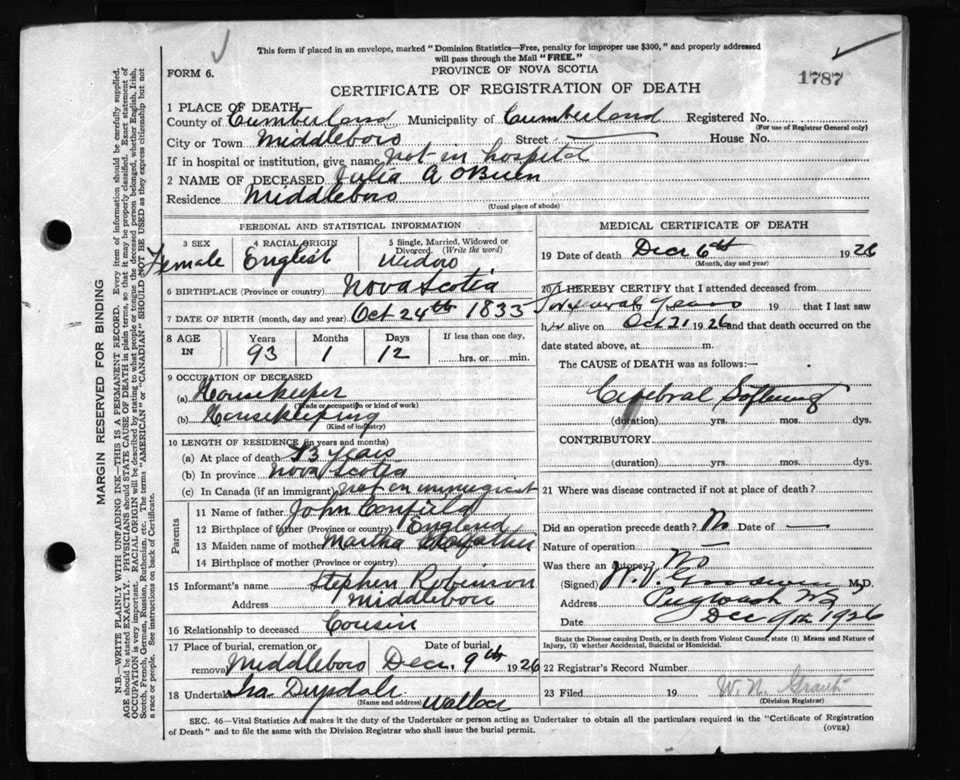 This form if placed in an envelope, marked "Dominion Statistics—Free, penalty for improper use $300," and properly addressed
will pass through the Mail "FREE."
FORM 6.
PROVINCE OF NOVA SCOTIA
1787
CERTIFICATE OF REGISTRATION OF DEATH
1 PLACE OF DEATH—
County of Cumberland Municipality of Cumberland Registered No.
(For use of Registrar General only)
City or Town Middleboro Street House No.
If in hospital or institution, give name not in hospital
2 NAME OF DECEASED Julia A OBrien
Residence Middleboro
(Usual place of abode)
PERSONAL AND STATISTICAL INFORMATION
3 SEX 4 RACIAL ORIGIN 5 Single, Married, Widowed or
Divorced. (Write the word)
Female English Widow
6 BIRTHPLACE (Province or country) Nova Scotia
7 DATE OF BIRTH (month, day and year) Oct 24th 1833
8 AGE IN Years Months Days If less than one day,
93 1 12 hrs. or min.
9 OCCUPATION OF DECEASED
(a) Housekeeper
(Trade or occupation or kind of work)
(b) Housekeeping
(Kind of industry)
10 LENGTH OF RESIDENCE (in years and months)
(a) At place of death 93 years
(b) In province Nova Scotia
(c) In Canada (if an immigrant) not an immigrant
Parents
11 Name of father John
12 Birthplace of father (Province or country) England
13 Maiden name of mother Martha
14 Birthplace of mother (Province or country)
15 Informant's name Stephen Robinson
Address Middleboro
16 Relationship to deceased Cousin
17 Place of burial, cremation or removal Date of burial
Middleboro Dec. 9th 1926
18 Undertaker Ira Drysdale
(Name and address) Wallace
MEDICAL CERTIFICATE OF DEATH
19 Date of death Dec 6th 1926
(Month, day and year)
20 I HEREBY CERTIFY that I attended deceased from
for several years 19 that I last saw
her alive on Oct 21 1926 and that death occurred on the
date stated above, at m.
The CAUSE OF DEATH was as follows:—
Cerebral Softening
(duration) yrs. mos. dys.
CONTRIBUTORY
(duration) yrs. mos. dys.
21 Where was disease contracted if not at place of death?
Did an operation precede death? No Date of —
Nature of operation —
Was there an autopsy? No
(Signed) M.D.
Address Pugwash NS
Date Dec 9th 1926
State the Disease causing Death, or in death from Violent Causes, state (1) Means and Nature of
Injury, (2) whether Accidental, Suicidal or Homicidal.
22 Registrar's Record Number
23 Filed 19 W. N. Grant
(Division Registrar)
SEC. 46—Vital Statistics Act makes it the duty of the Undertaker or person acting as Undertaker to obtain all the particulars required in the "Certificate of Registration
of Death" and to file the same with the Division Registrar who shall issue the burial permit.
(OVER)
MARGIN RESERVED FOR BINDING
N.B.—WRITE PLAINLY WITH UNFADING INK—THIS IS A PERMANENT RECORD. Every item of information should be carefully supplied.
AGE should be stated EXACTLY. PHYSICIANS should STATE CAUSE OF DEATH in plain terms, so that it may be properly classified. Exact statement of
OCCUPATION is very important. RACIAL ORIGIN will be described by stating to what people or tongue the deceased person belonged, whether English, Irish,
Scotch, French, German, Russian, Ruthenian, etc. The terms "AMERICAN" or "CANADIAN" SHOULD NOT BE USED as they express citizenship but not
a race or people. See instructions on back of Certificate.